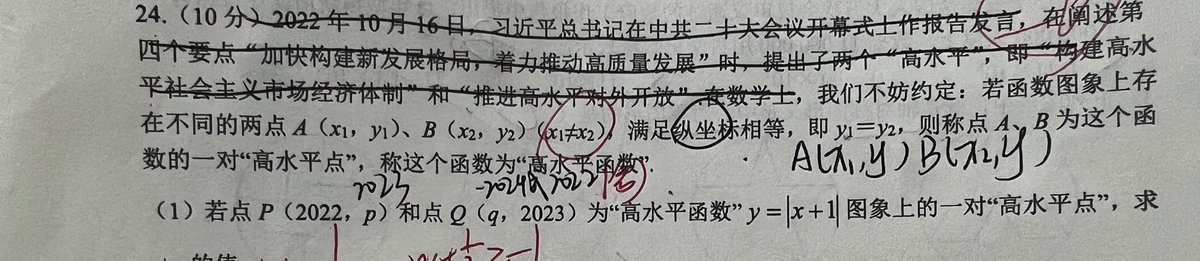 24.（10 分）2022 年 10 月 16 日，习近平总书记在中共二十大会议开幕式上作报告发言，在阐述第
四个要点“加快构建新发展格局，着力推动高质量发展”时，提出了两个“高水平”，即“构建高水
平社会主义市场经济体制”和“推进高水平对外开放”.在数学上，我们不妨约定：若函数图象上存
在不同的两点 A（x₁，y₁）、B（x₂，y₂）（x₁≠x₂），满足纵坐标相等，即 y₁=y₂，则称点 A、B 为这个函
数的一对“高水平点”，称这个函数为“高水平函数”.
A(x₁,y) B(x₂,y)
2023 -2024或2022(舍)
（1）若点 P（2022，p）和点 Q（q，2023）为“高水平函数” y=|x+1| 图象上的一对“高水平点”，求
的值